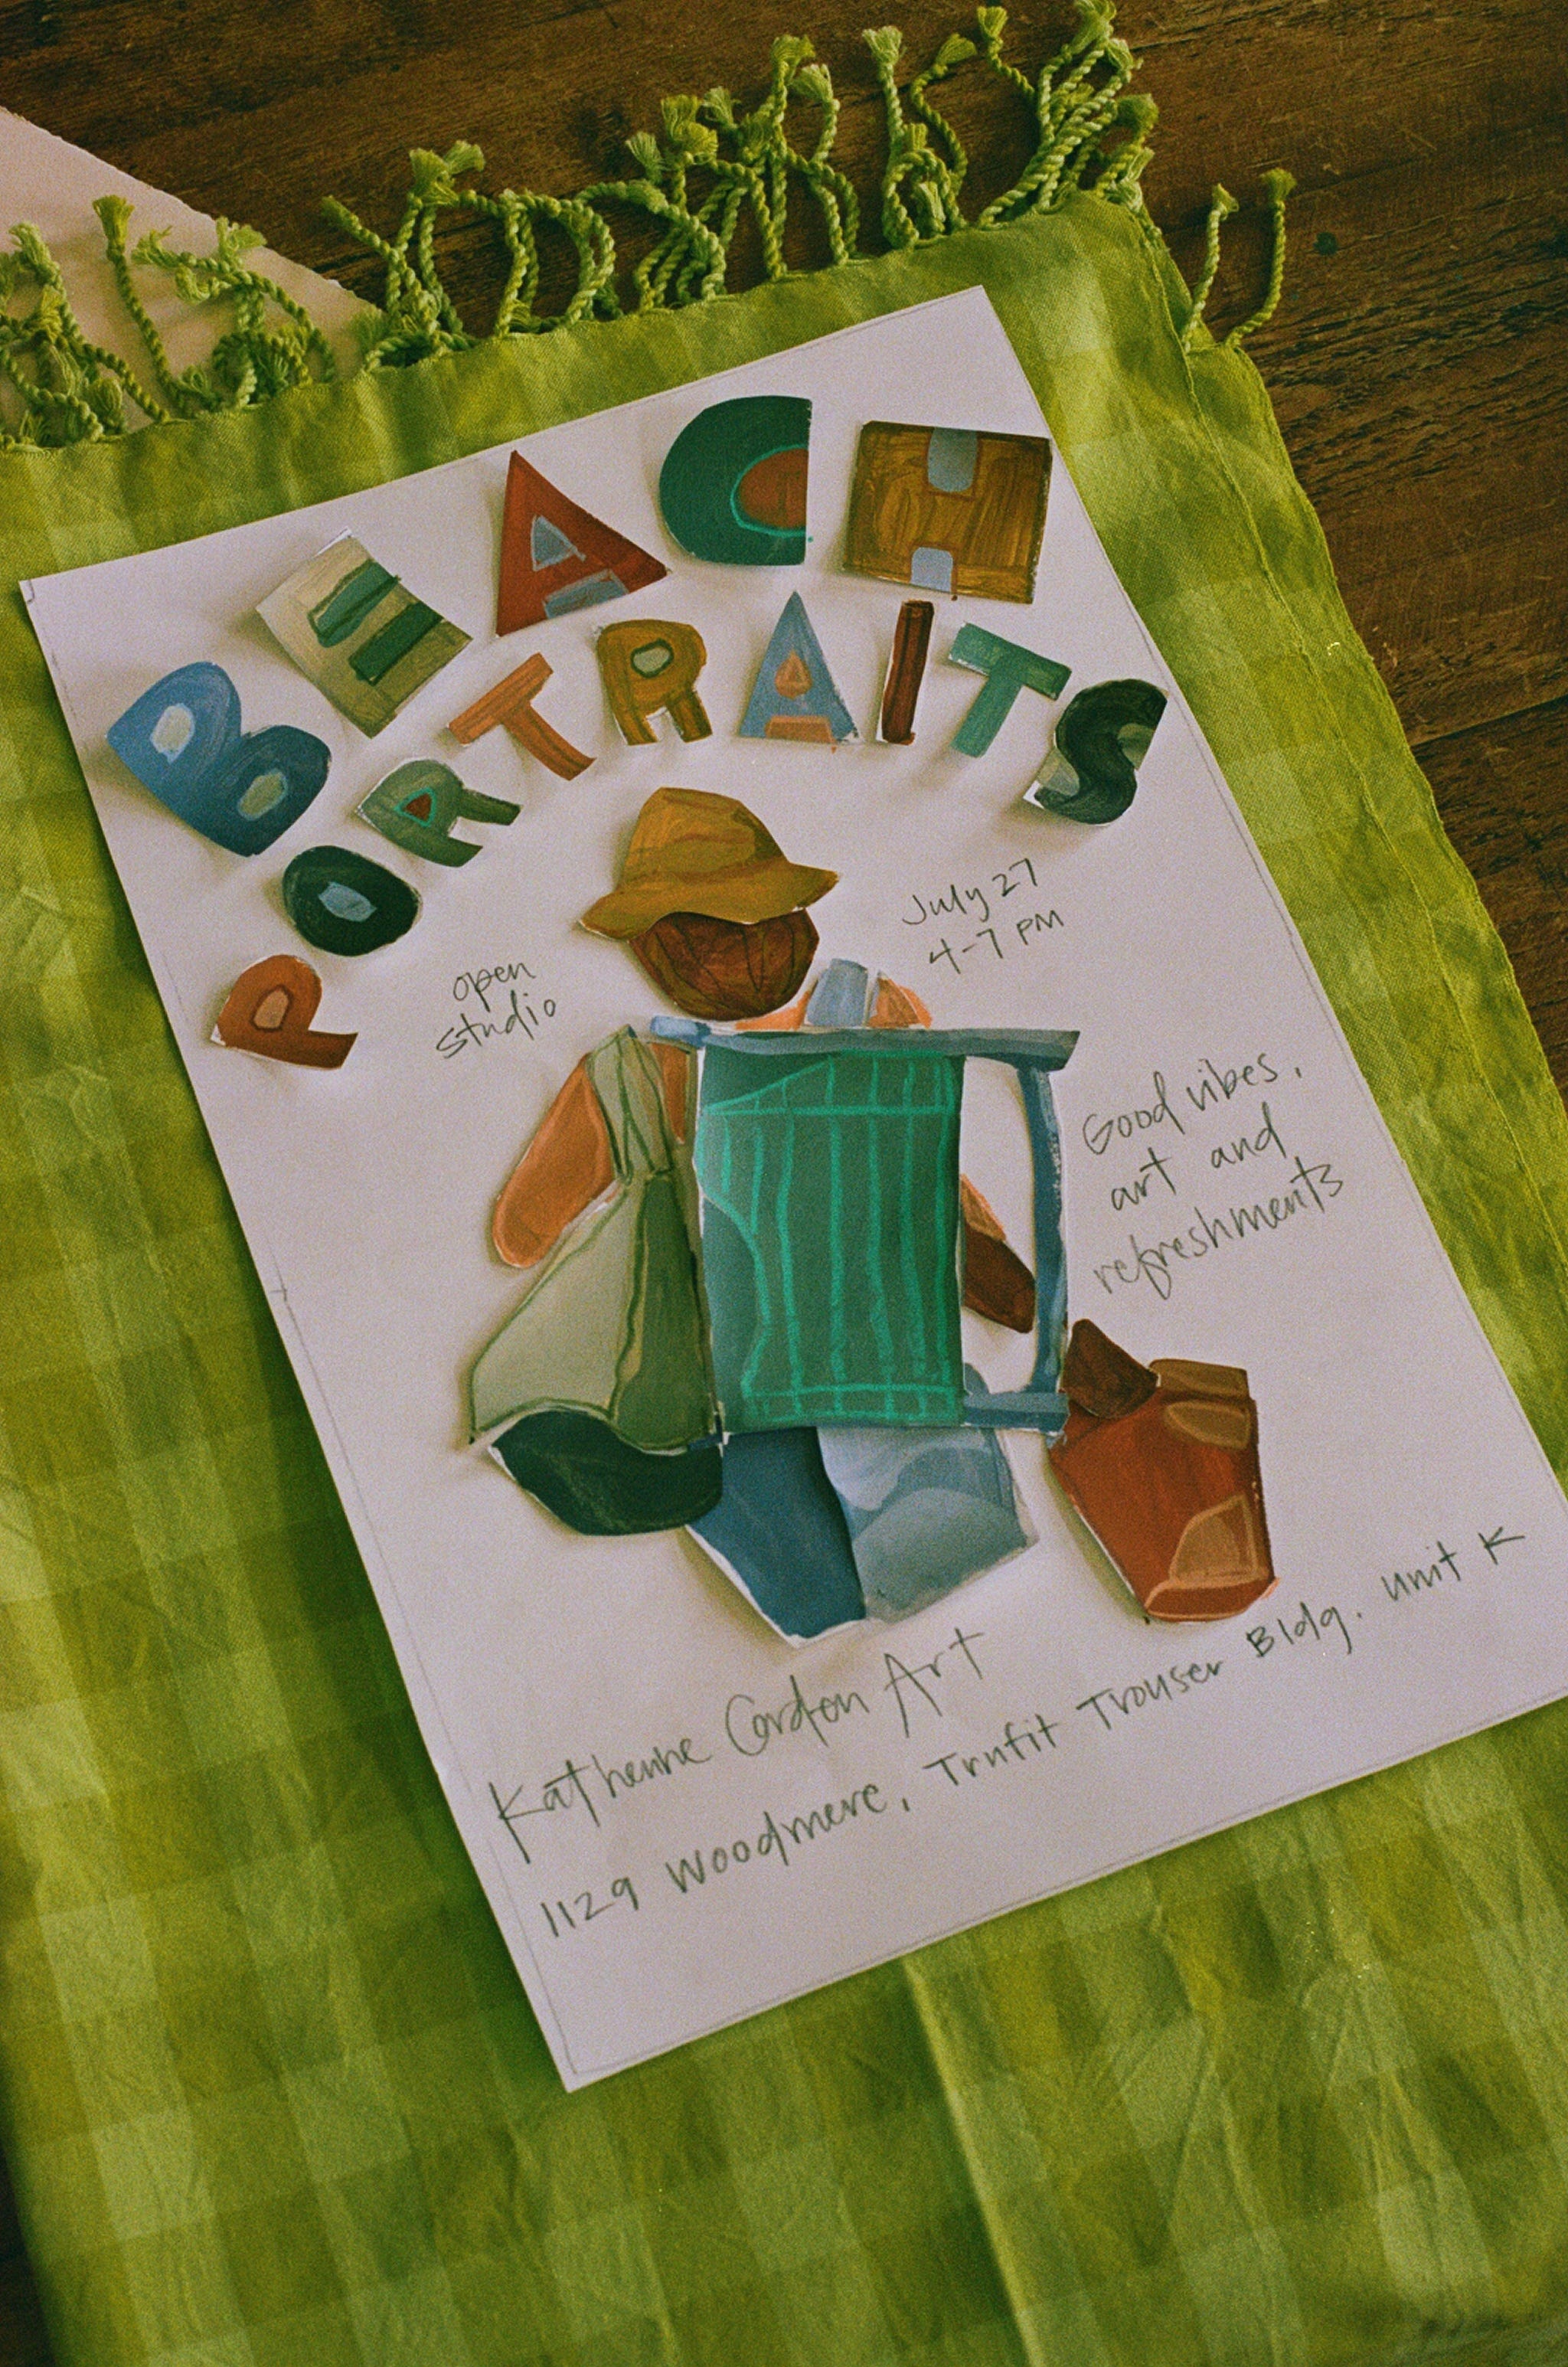 BEACH
PORTRAITS
open
studio
July 27
4-7 PM
Good vibes,
art and
refreshments
Katherine Cordon Art
1129 Woodmere, Trufit Trouser Bldg. Unit K